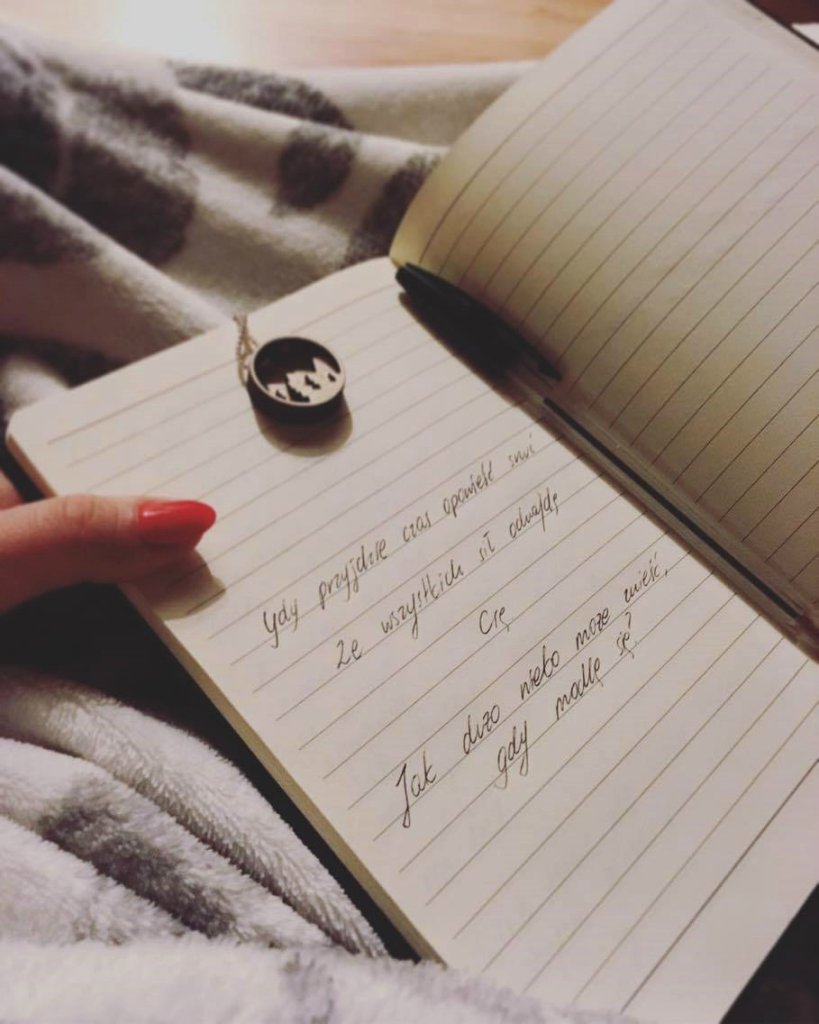 Gdy przyjdzie czas opowieść snuć
że wszystkich sił odnajdę
Cię
Jak dużo niebo może znieść,
gdy modlę się?